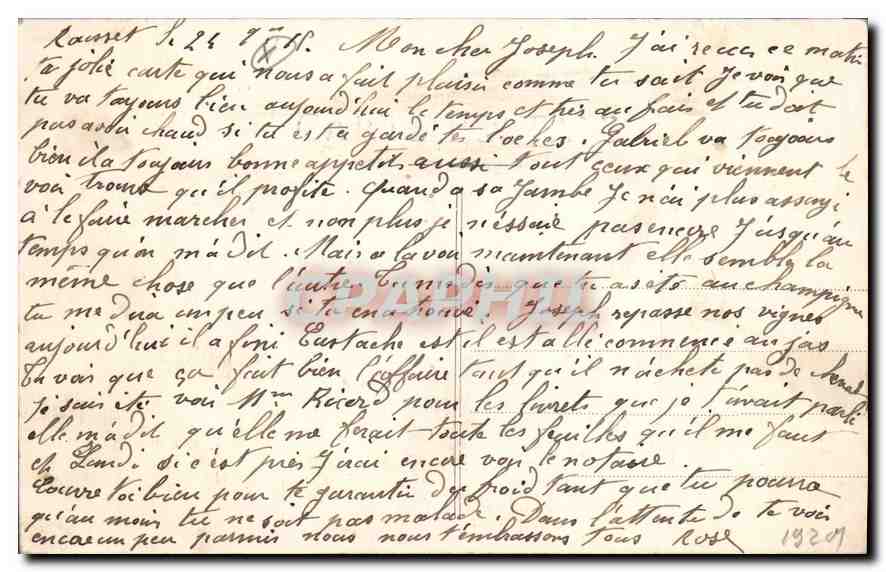 Rousset le 24 9bre 15. Mon cher Joseph. J'ai reccu ce matin
ta jolie carte qui nous a fait plaisir comme tu sait Je vois que
tu va toujours bien aujourd'hui le temps et très au frais et tu doit
pas avoir chaud si tu est a garde tes boches. Gabriel va toujours
bien il a toujours bonne appetit aussi tout ceux qui viennent le
voir trouve qu'il profite. Quand a sa Jambe Je n'ai plus assayi
à le faire marcher et non plus je n'éssaie pas encore Jusqu'au
temps qu'on m'a dit. Mais a la voir maintenant elle semble la
même chose que l'autre. Tu me dis que tu a été au champignon
tu me dira un peu si tu en a trouvé. Joseph repasse nos vignes
aujourd'hui il a fini Eustache est il est allé commencé au jas
Tu vois que ça fait bien l'affaire tant qu'il n'achete pas de
je suis été voir Mme Ricard pour les livrets que je t'avait parlé
elle m'a dit qu'elle me ferait toute les feuilles qu'il me faut
et Lundi si c'est près J'irai encore voir le notaire.
Couvre toi bien pour te garantir du froid tant que tu pourra
qu'au moins tu ne soit pas malade. Dans l'attente de te voir
encore un peu parmis nous nous t'embrassons tous Rose
CPAPHIL